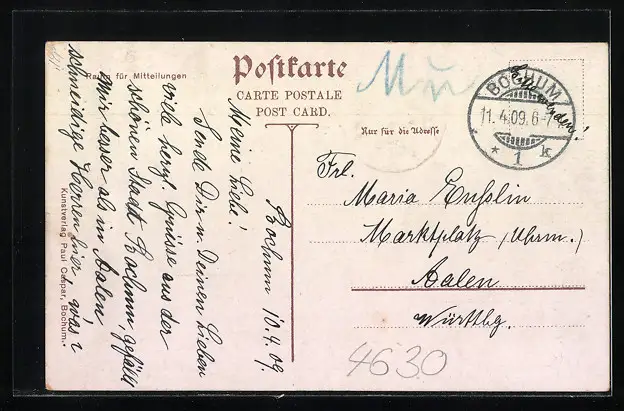 Raum für Mitteilungen
Postkarte
CARTE POSTALE
POST CARD.
Nur für die Adresse
BOCHUM
11.4.09.6-7
* 1 k
Bochum 10.4.09.
Meine Liebe!
Sende Dir u. Deinen Lieben
viele herzl. Grüsse aus der
schönen Stadt Bochum, gefällt
mir besser als in Aalen
schneidige Herren hier, was?
Frl.
Maria Ensslin
Marktplatz (Uhrm.)
Aalen
Württbg.
4630
Kunstverlag Paul Caspar, Bochum.